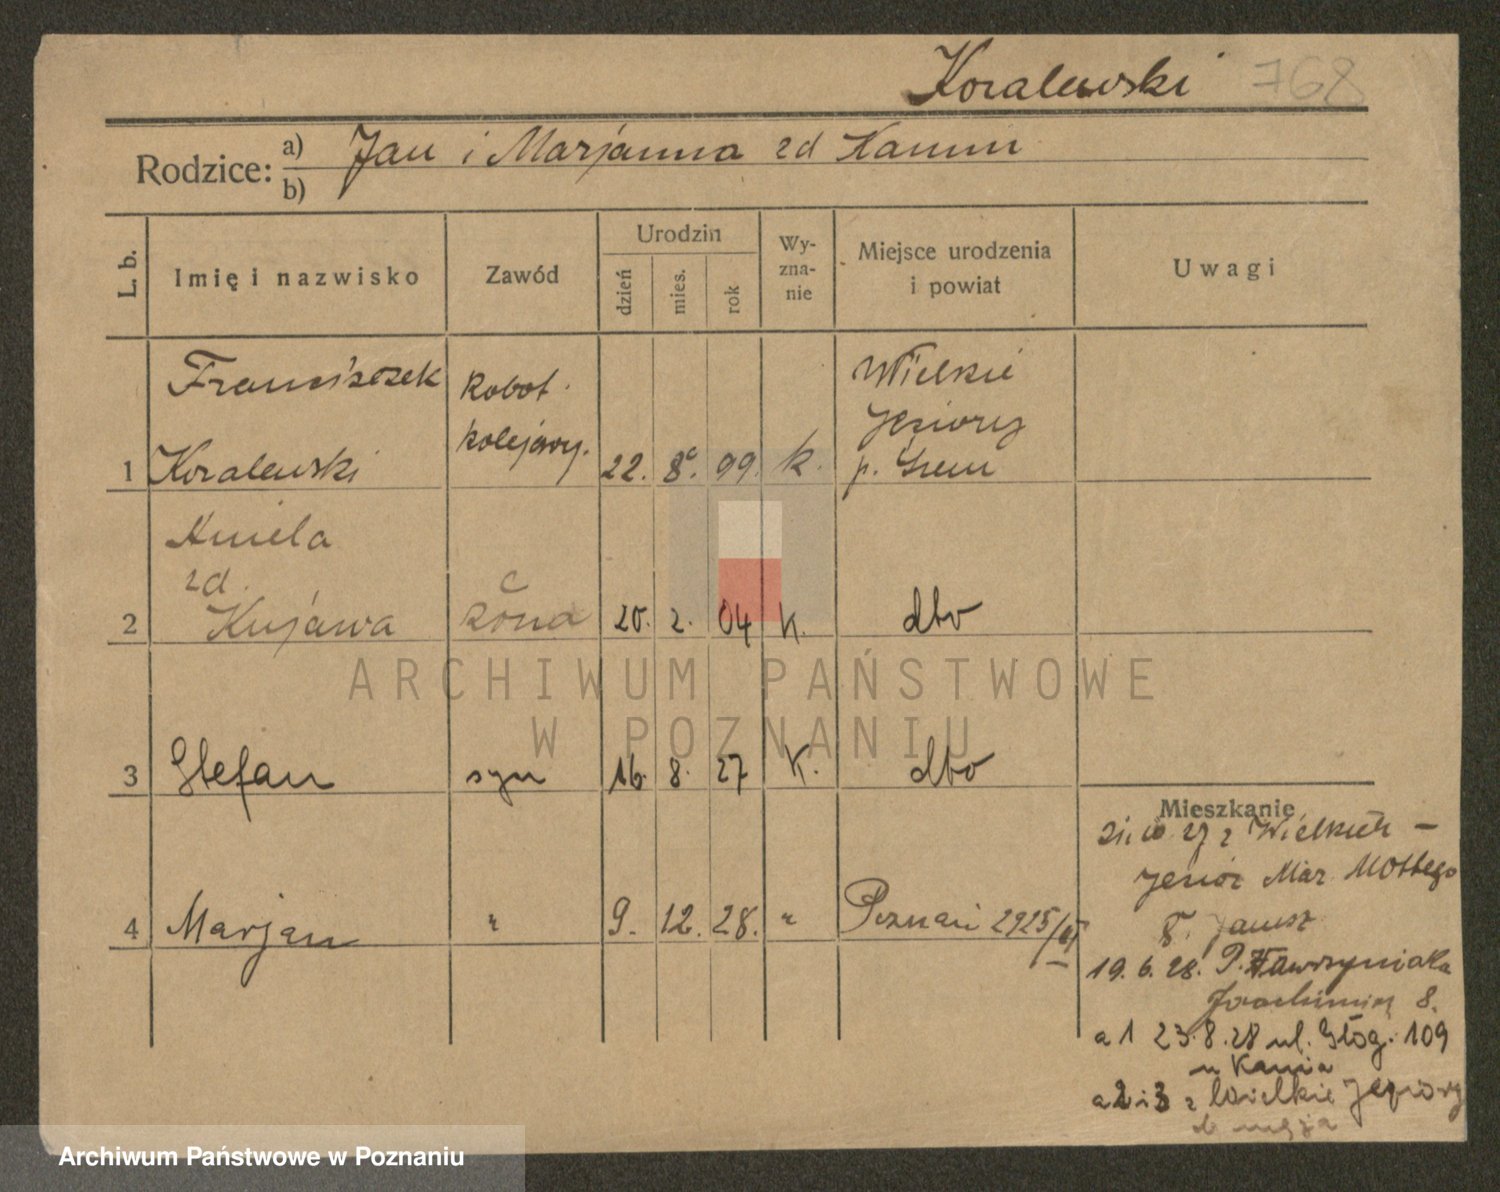 Koralewski 768
Rodzice: a) Jan i Marjanna zd Kamin
b)
L. b. Imię i nazwisko Zawód Urodzin dzień mies. rok Wy-zna-nie Miejsce urodzenia i powiat Uwagi
Franciszek Robot. Wielkie
kolejowy. Jeziory
1 Koralewski 22. 8. 99. k. p. Śrem
Aniela
zd.
2 Kujawa żona 20. 2. 04 k. dto
ARCHIWUM PAŃSTWOWE
W POZNANIU
3 Stefan syn 16. 8. 27 k. dto
4 Marjan " 9. 12. 28. " Poznań 2925/
Mieszkanie
27 z Wielkich -
Jezior Mar. Mottego
8.
19. 6. 28. P. Wawrzyniaka
8.
a 1 23. 8. 28 ul. Głog. 109
u Kania
a 2 i 3 z Wielkie Jeziory
męża
Archiwum Państwowe w Poznaniu